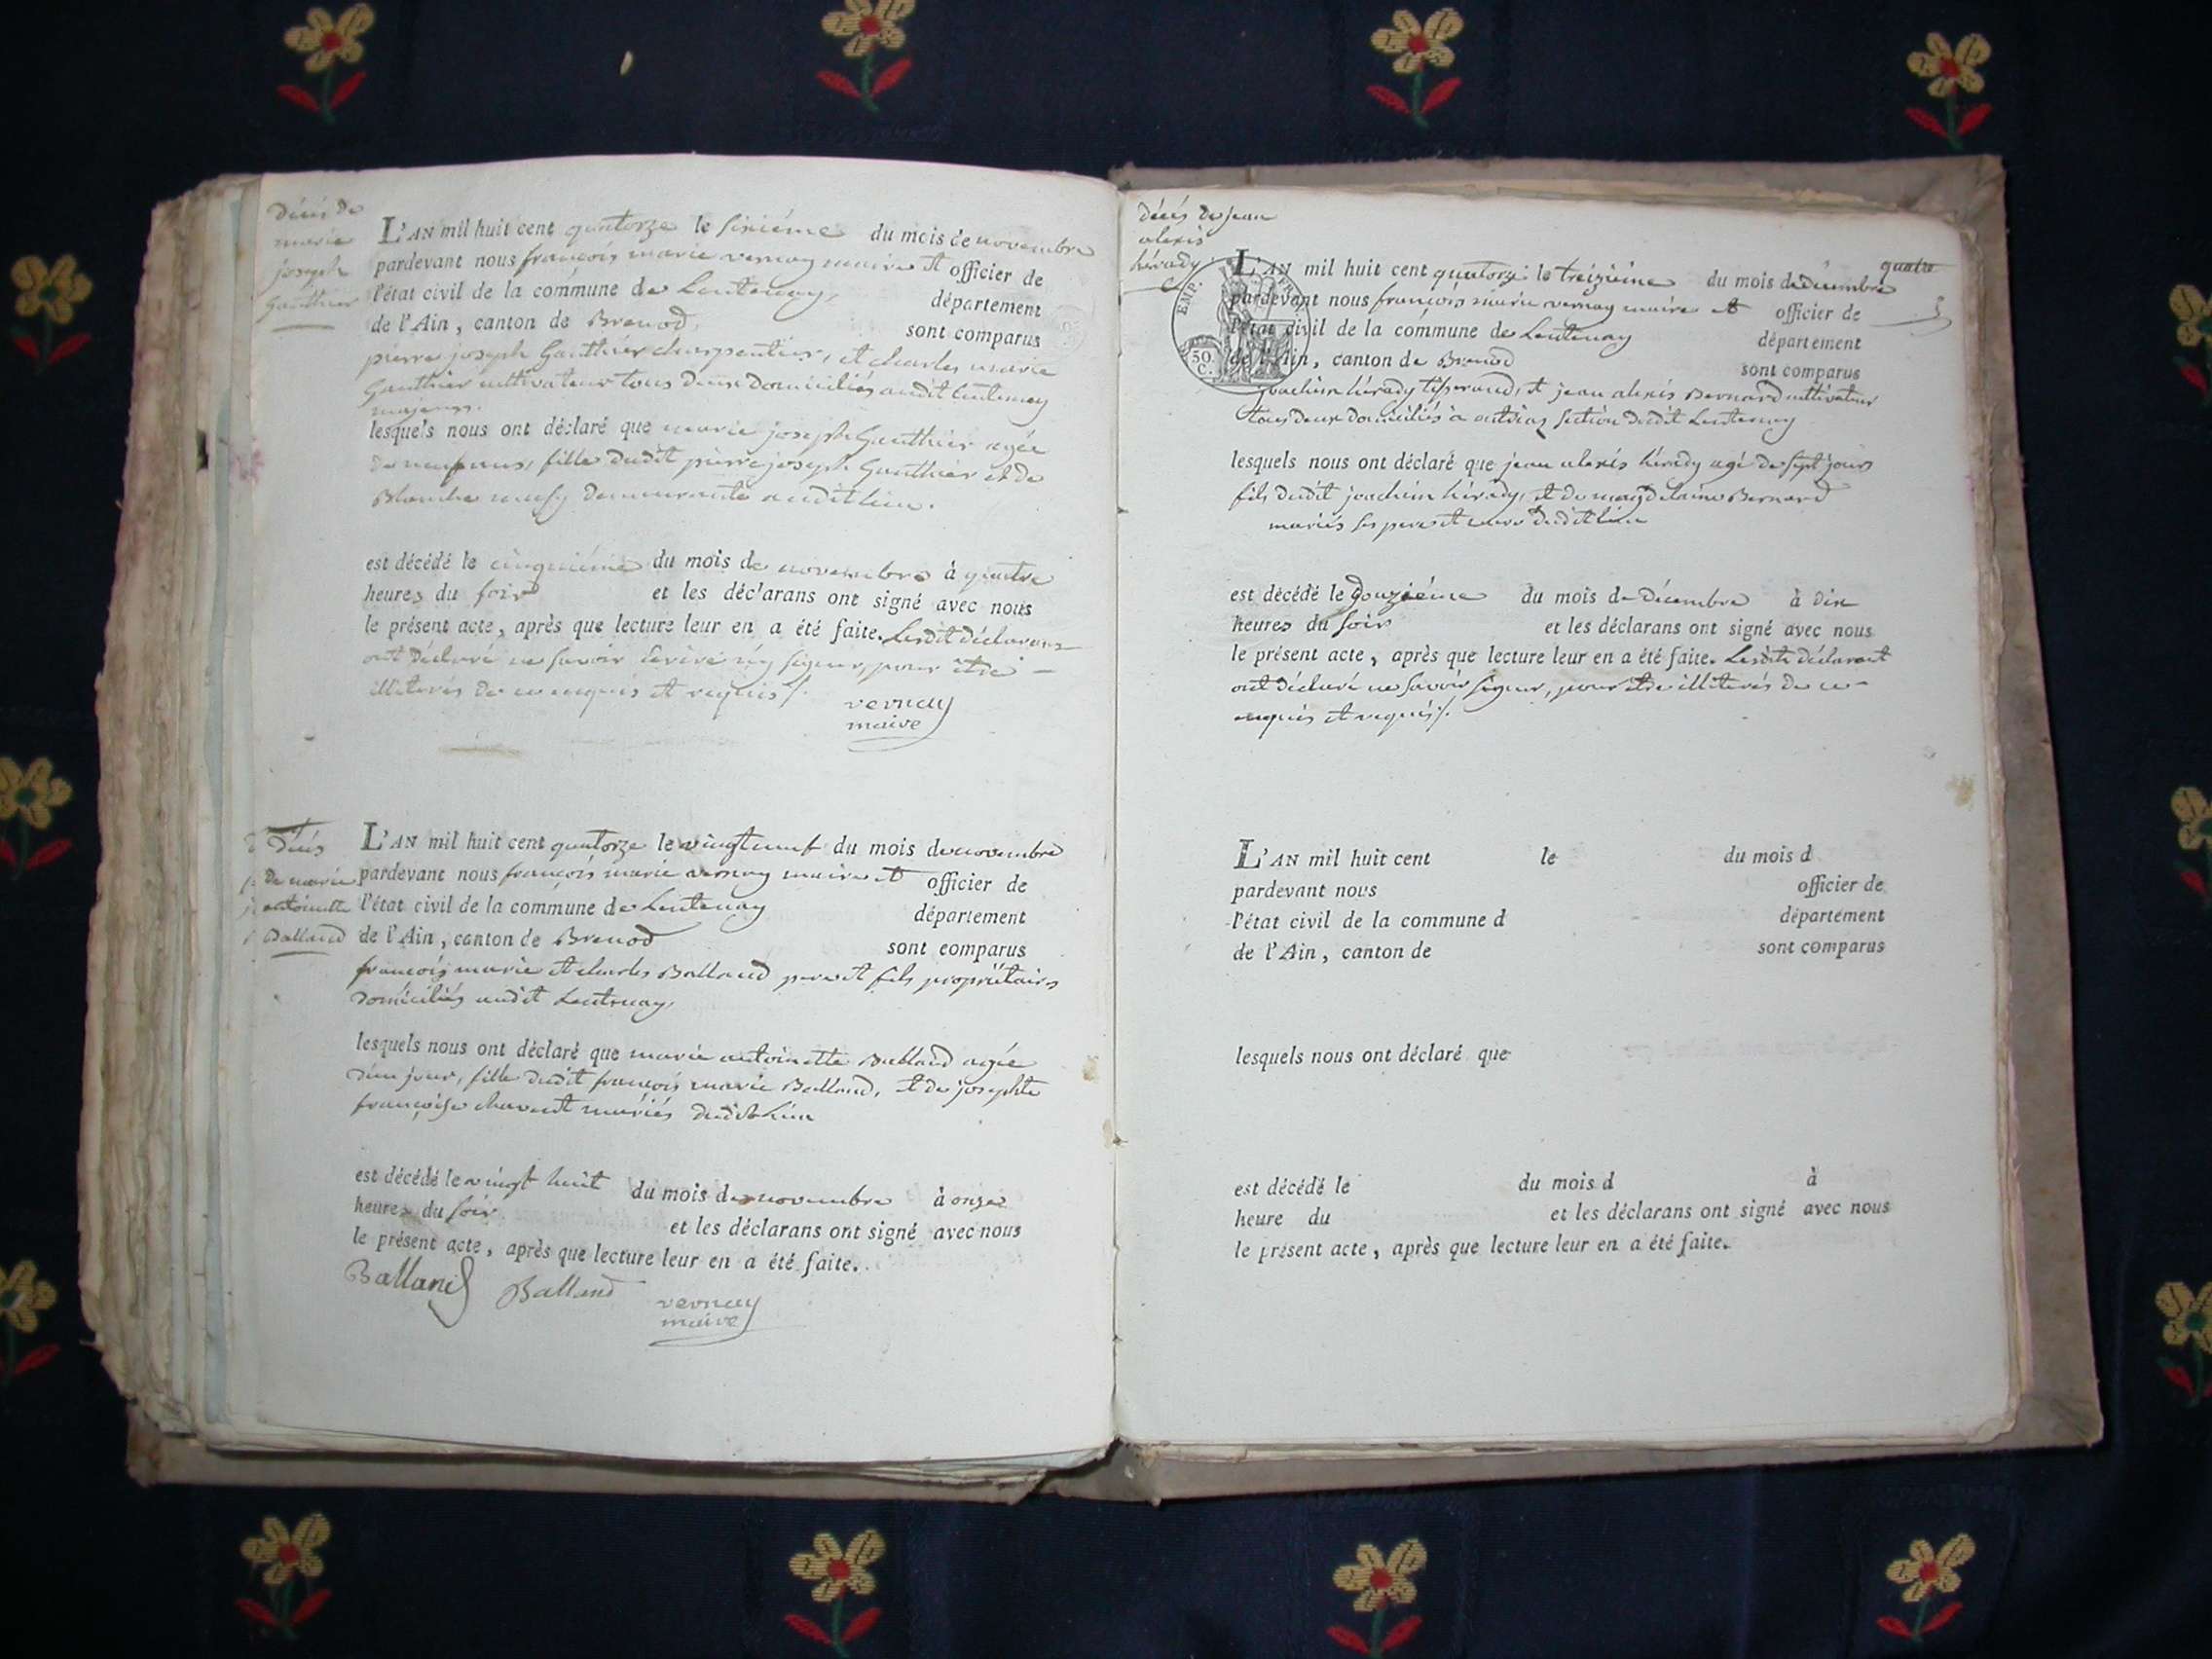 décès de
marie
joseph
Gauthier
L'AN mil huit cent quatorze le sixiéme du mois de novembre
pardevant nous françois marie vernay maire et officier de
l'état civil de la commune de Lentenay, département
de l'Ain, canton de Brenod, sont comparus
pierre joseph Gauthier charpentier, et charles marie
Gauthier cultivateur tous deux domiciliés audit Lentenay
majeurs.
lesquels nous ont déclaré que marie joseph Gauthier agée
de neuf ans, fille dudit pierre joseph Gauthier et de
Blanche demeurante audit lieu.
est décédé le cinquiéme du mois de novembre à quatre
heures du soir et les déclarans ont signé avec nous
le présent acte, après que lecture leur en a été faite. Lesdit déclarans
ont déclaré ne savoir Ecrire ny signer, pour être
illiterés de ce enquis et requis ./.
vernay
maire
décès
de marie
antoinette
Balland
L'AN mil huit cent quatorze le vingt neuf du mois de novembre
pardevant nous françois marie vernay maire et officier de
l'état civil de la commune de Lentenay département
de l'Ain, canton de Brenod sont comparus
françois marie et charles Balland pere et fils propriétairs
domiciliés audit Lentenay,
lesquels nous ont déclaré que marie antoinette Balland agée
d'un jour, fille dudit françois marie Balland, et de josephte
françoise chavent mariés dudit lieu
est décédé le vingt huit du mois de novembre à onze
heures du soir. et les déclarans ont signé avec nous
le présent acte, après que lecture leur en a été faite.
Balland Balland vernay
maire
décès de jean
alexis
hérady
quatre
EMP. FR
50.
C.
L'AN mil huit cent quatorze le treiziéme du mois de décembre
pardevant nous françois marie vernay maire et officier de
l'état civil de la commune de Lentenay département
de l'Ain, canton de Brenod sont comparus
joachim hérady tisserand, et jean alexis Bernard cultivateur
tous deux domiciliés à outriaz section dudit Lentenay
lesquels nous ont déclaré que jean alexis hérady agé de sept jours
fils dudit joachim hérady, et de magdelaine Bernard
mariés ses pere et mere dudit lieu
est décédé le douziéme du mois de décembre à dix
heures du soir et les déclarans ont signé avec nous
le présent acte, après que lecture leur en a été faite. Lesdits déclarant
ont déclaré ne savoir signer, pour être illiterés de ce
enquis et requis ./.
L'AN mil huit cent le du mois d
pardevant nous officier de
l'état civil de la commune d département
de l'Ain, canton de sont comparus
lesquels nous ont déclaré que
est décédé le du mois d à
heure du et les déclarans ont signé avec nous
le présent acte, après que lecture leur en a été faite.